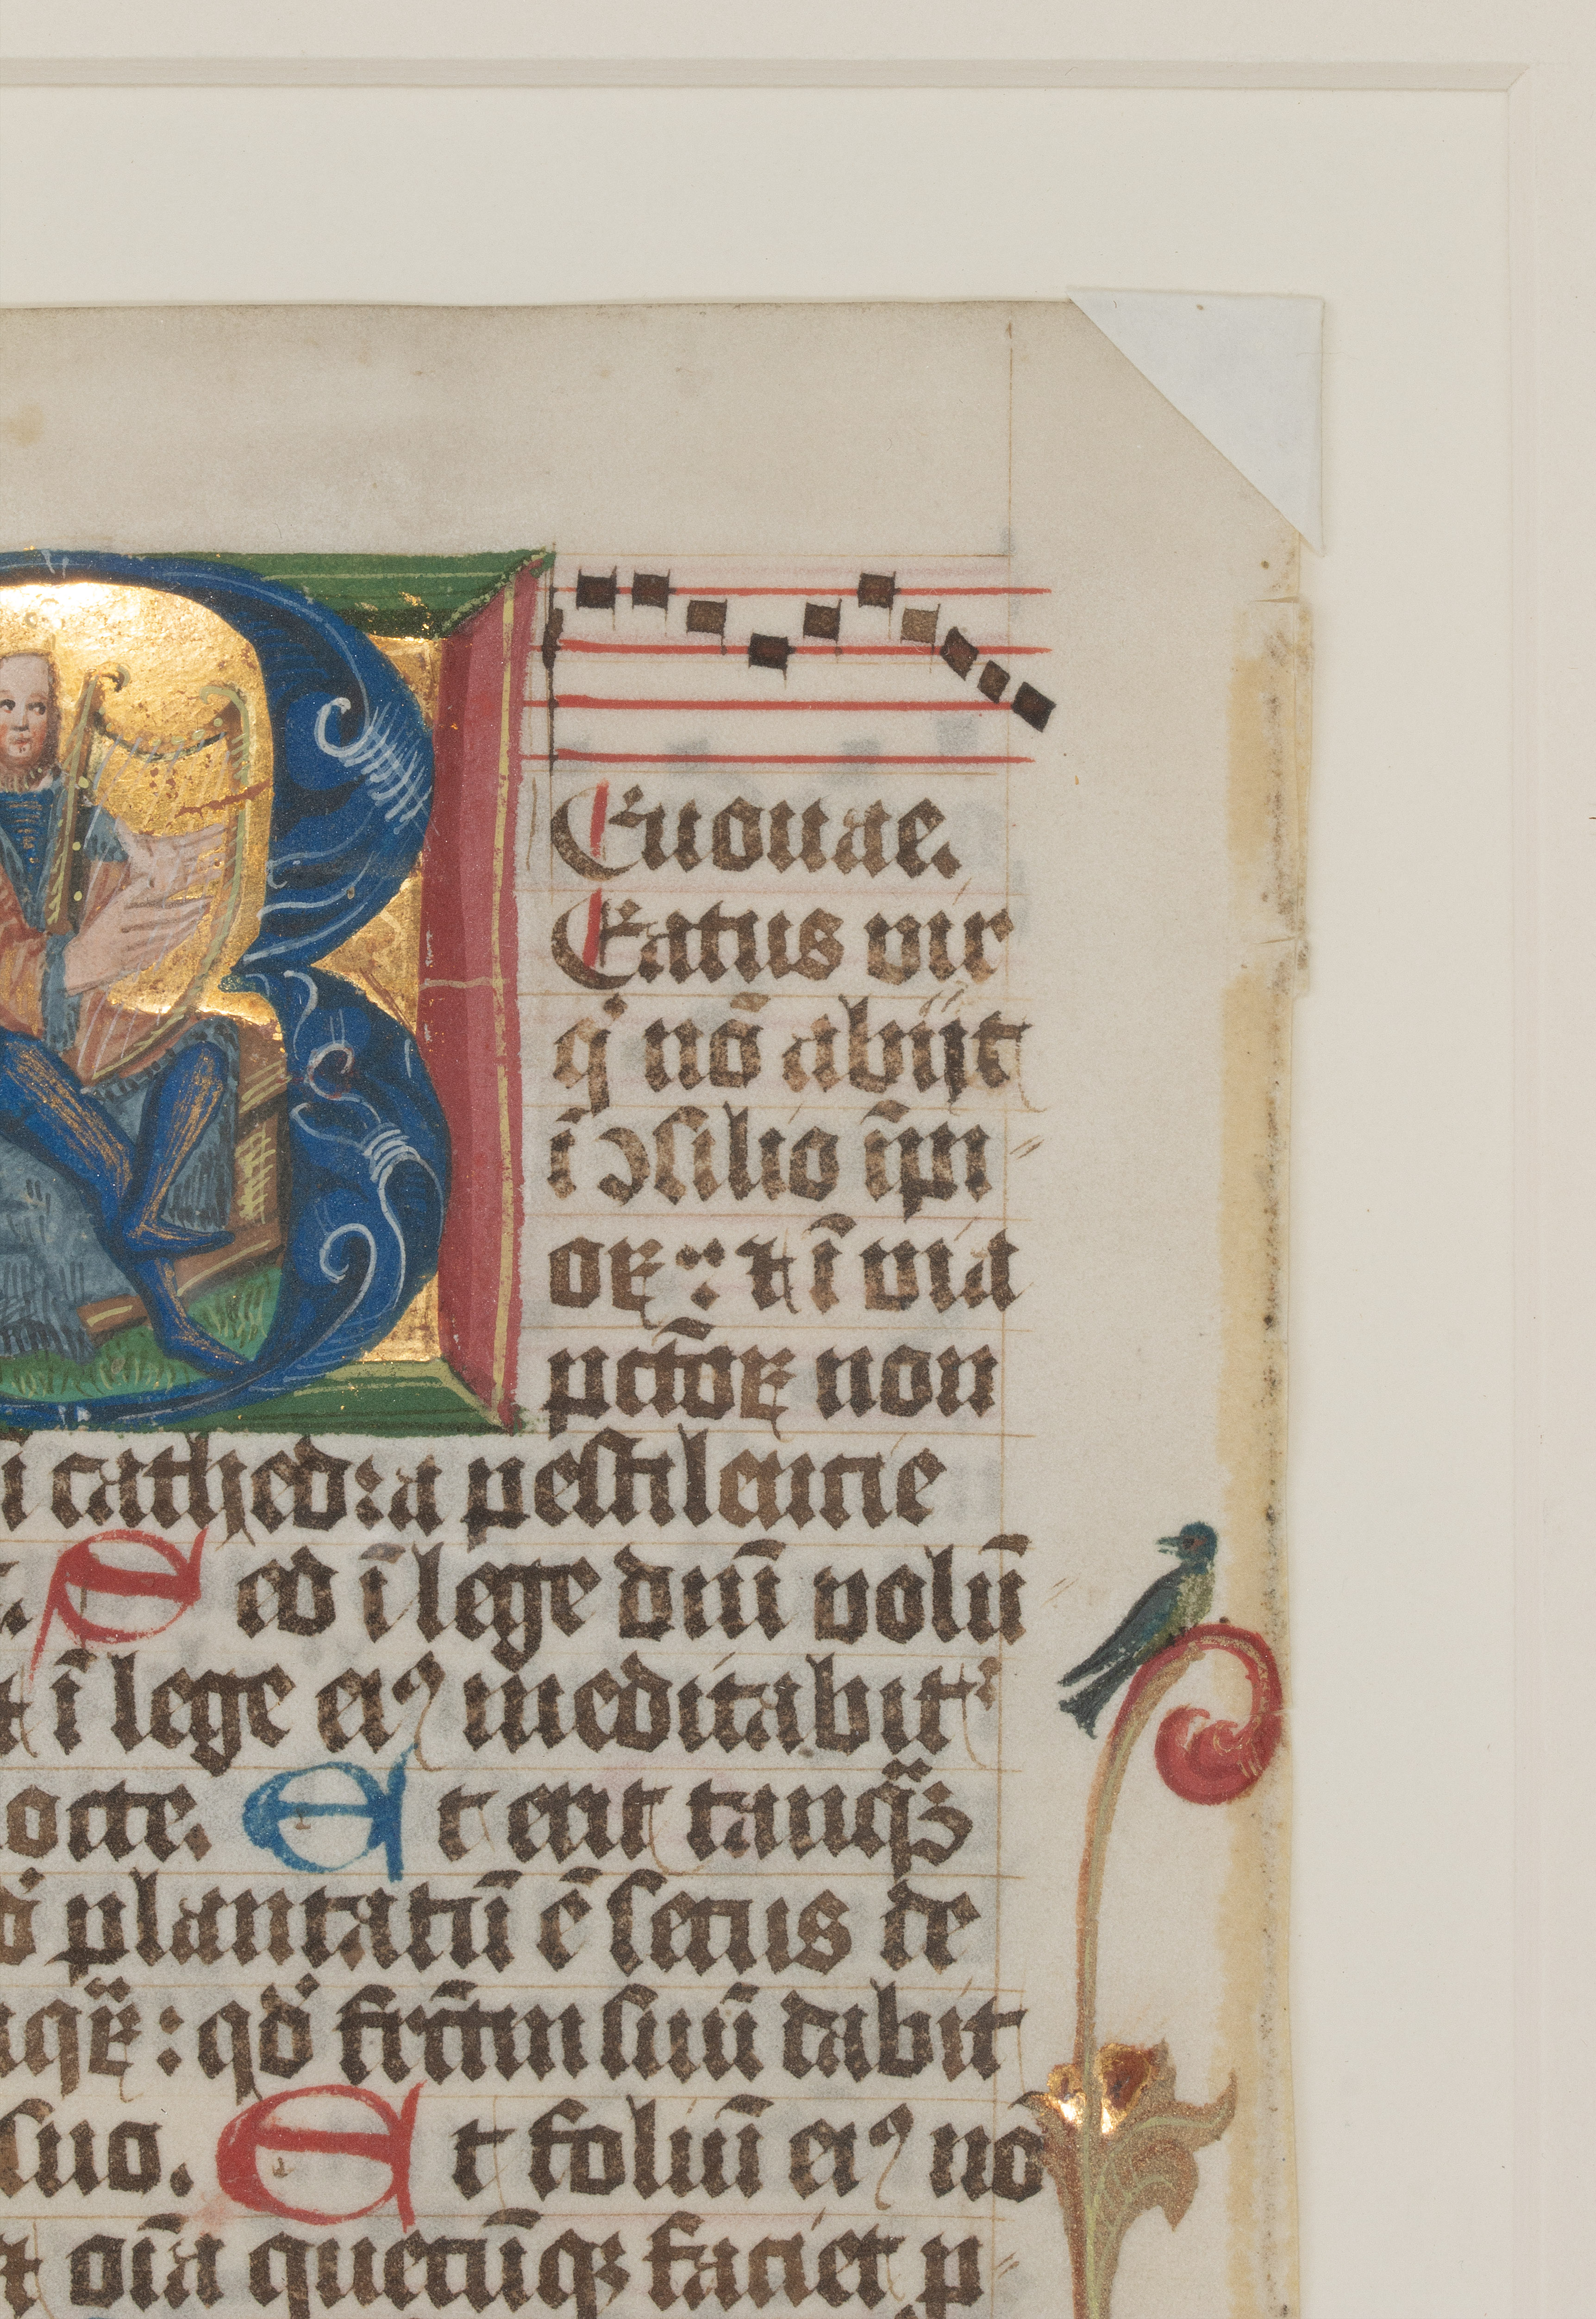 Euouae.
Eatus vir
q nō abijt
ī ɔsilio īpi
oꝝ: ⁊ ī via
pctōꝝ non
cathedra pestilencie
Sed ī lege dnī volū
ī lege eiꝰ meditabit
octe. Et erit tanqͣꝫ
plantatū ē secus de
aqꝝ: qd frctm suū dabit
suo. Et foliū eiꝰ nō
⁊ oīa quecūqꝫ faciet p